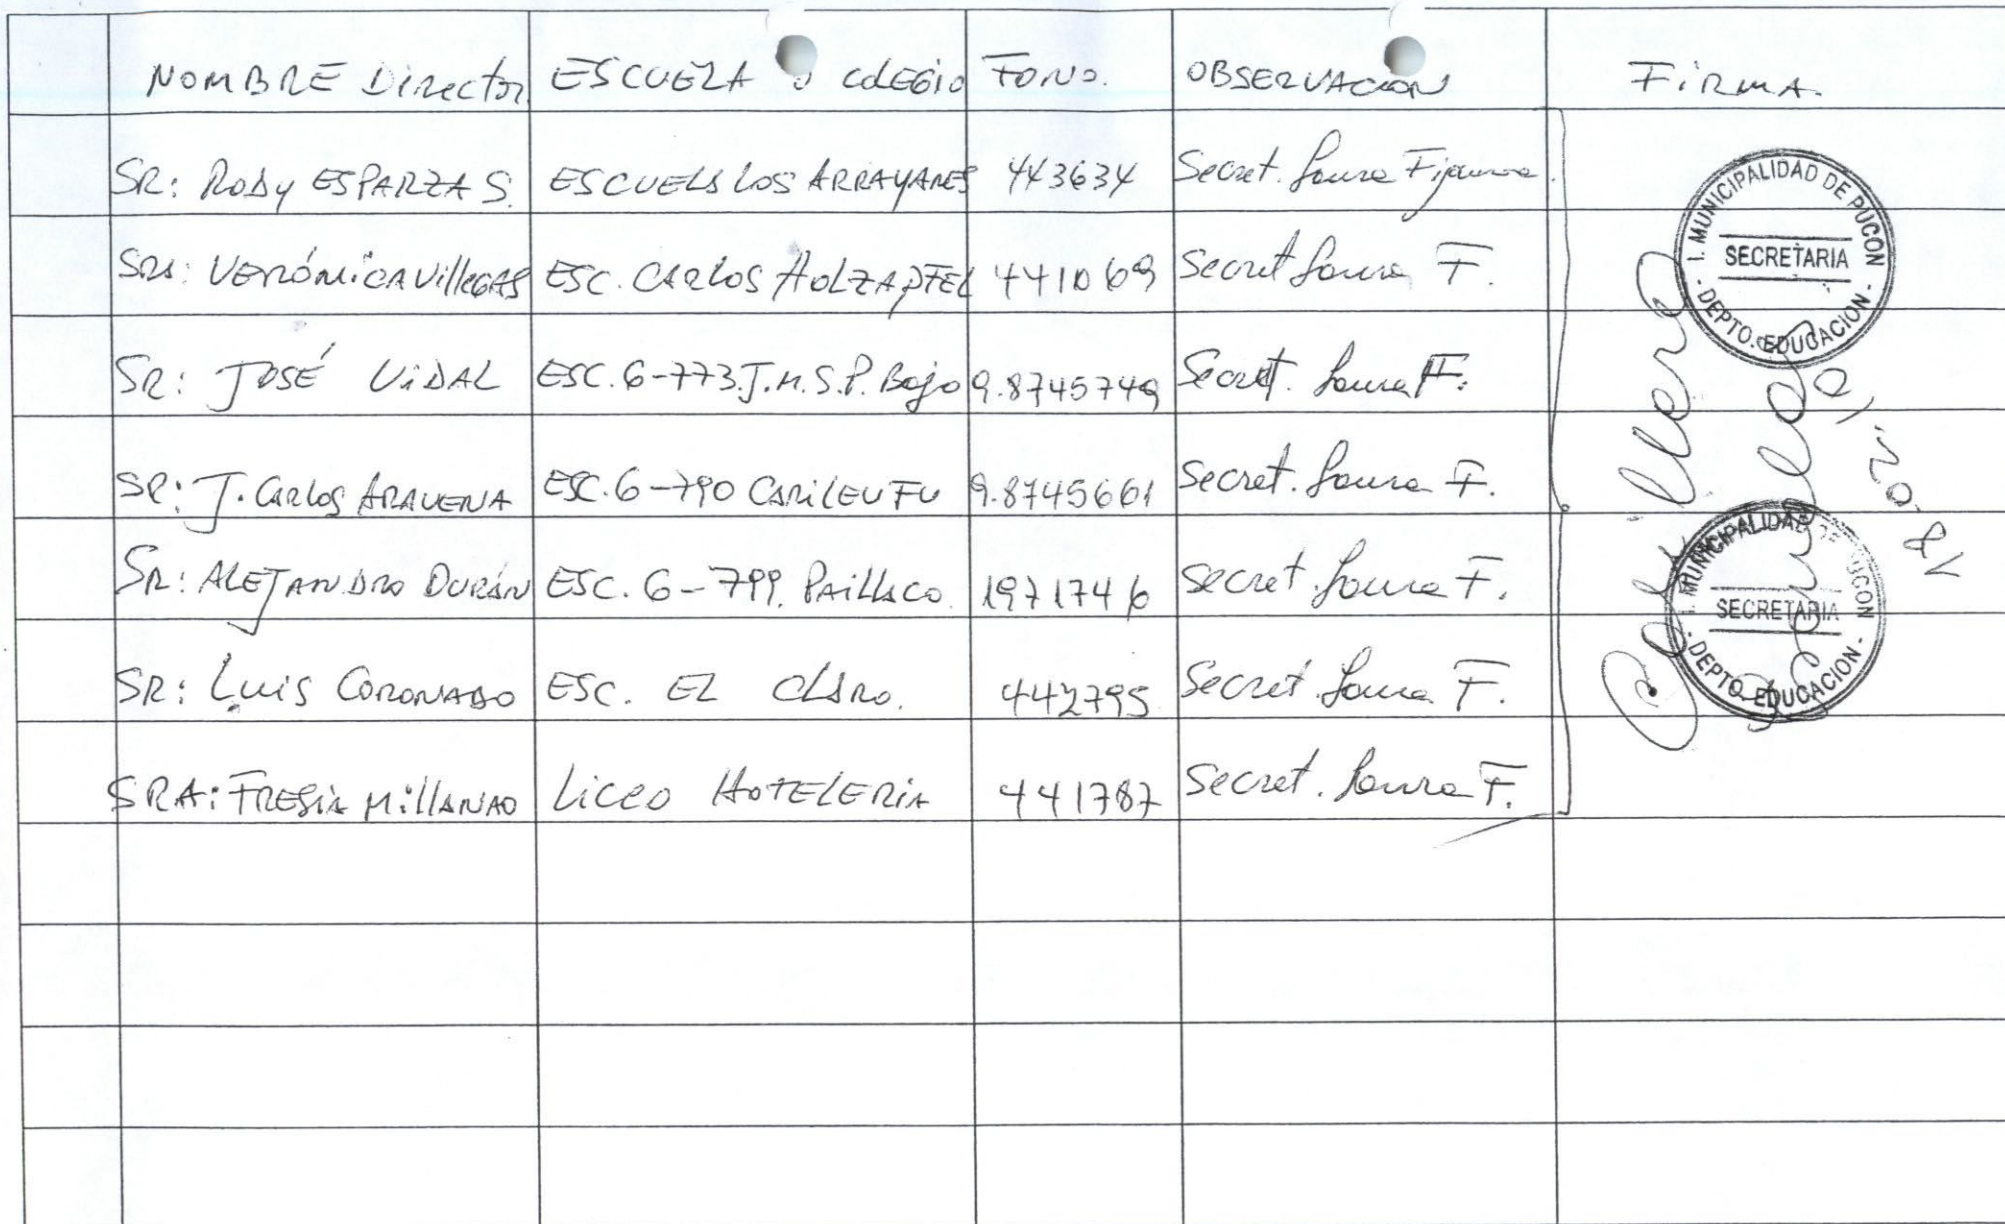 NOMBRE Director ESCUELA o COLEGIO FONO. OBSERVACION FIRMA.
SR: RODY ESPARZA S. ESCUELA LOS ARRAYANES 443634 Secret. Laura
SRA: VERÓNICA Villegas ESC. CARLOS HOLZAPFEL 441069 Secret Laura F.
SR: JOSÉ VIDAL ESC. G-773 J.M.S.P. Bajo 9.8745749 Secret. Laura F.
SR: J. CARLOS ARAVENA ESC. G-790 CARILEUFU 9.8745661 Secret. Laura F.
SR: ALEJANDRO DURÁN ESC. G-799. PAILLACO. 1971746 Secret. Laura F.
SR: Luis CORONADO ESC. EL CLARO. 442795 Secret Laura F.
SRA: FRESIA MILLANAO Liceo HOTELERIA 441787 Secret. Laura F.
I. MUNICIPALIDAD DE PUCON
SECRETARIA
- DEPTO. EDUCACION -
I. MUNICIPALIDAD DE PUCON
SECRETARIA
- DEPTO. EDUCACION -